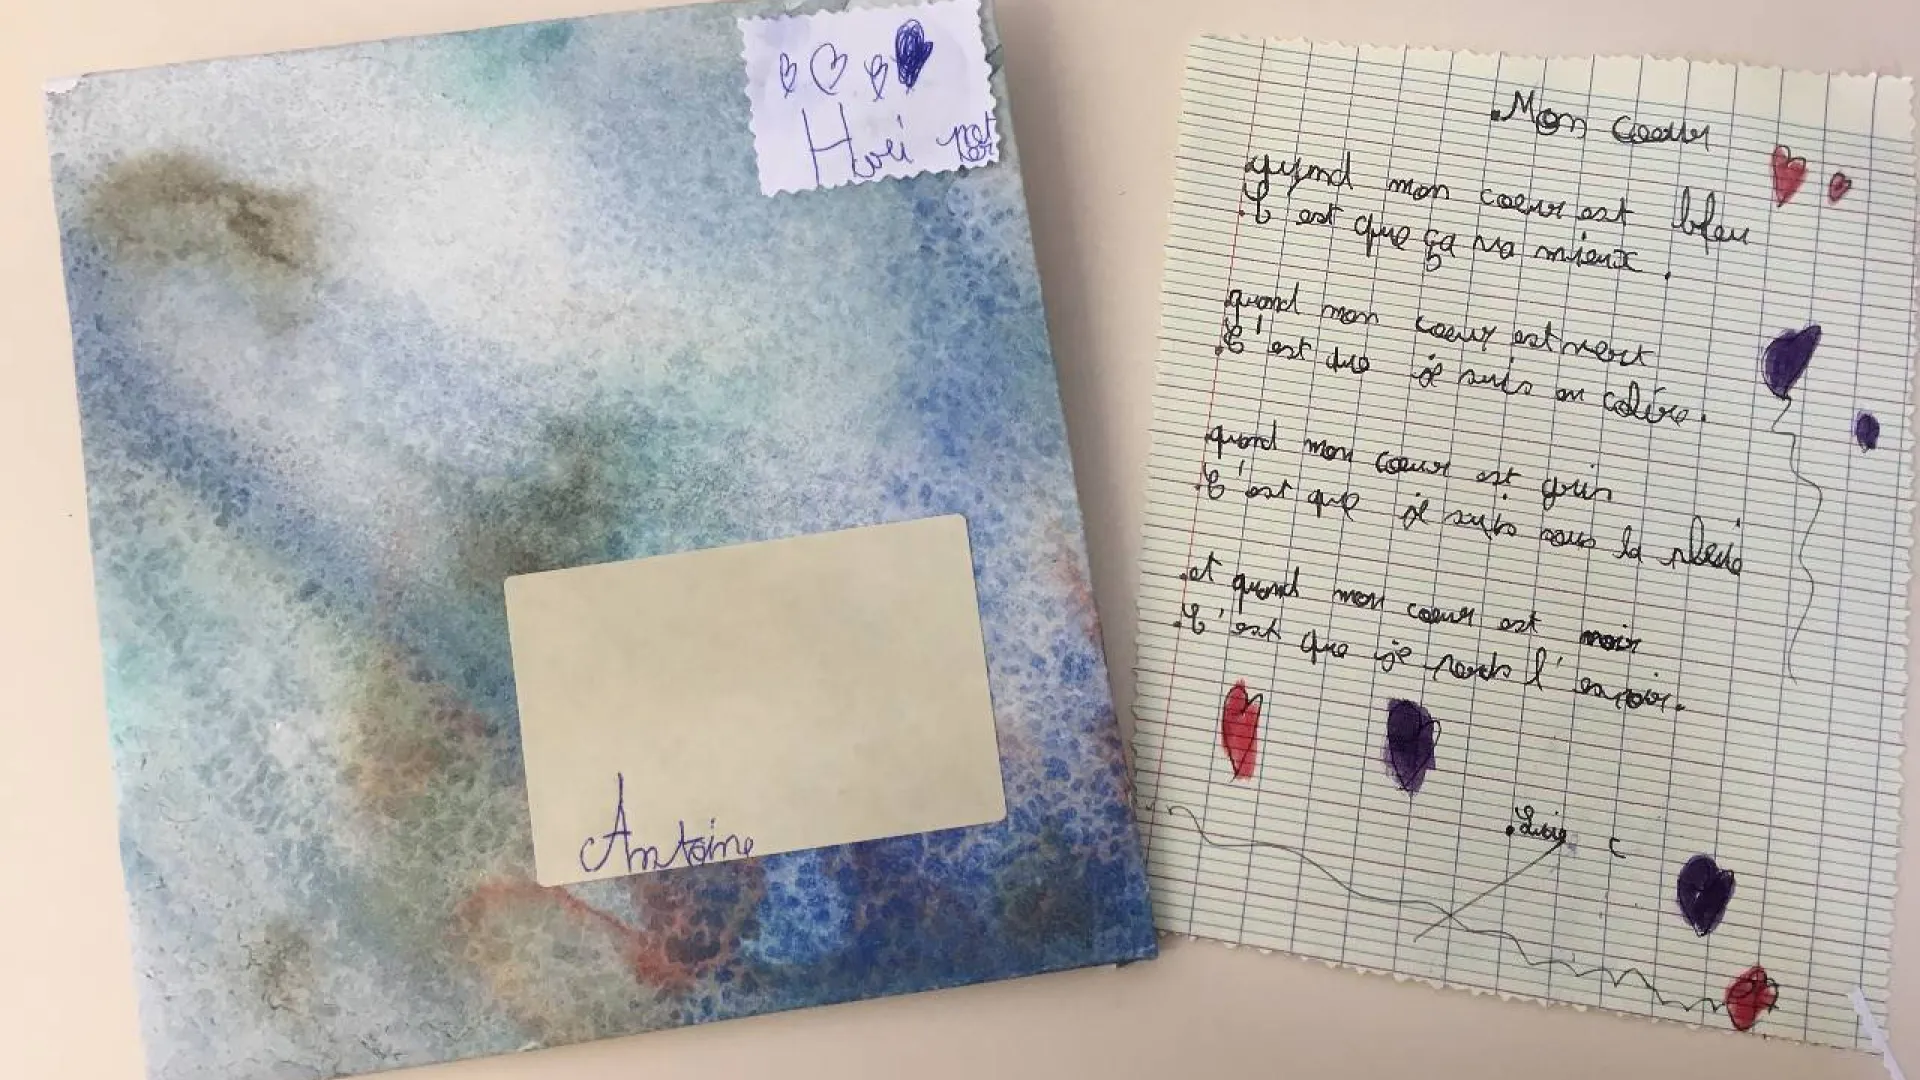 Antoine
Mon coeur
quand mon coeur est bleu
C'est que ça va mieux.
quand mon coeur est vert
C'est que je suis en colère.
quand mon coeur est gris
C'est que je suis sous la pluie
et quand mon coeur est noir
C'est que je perds l'espoir.